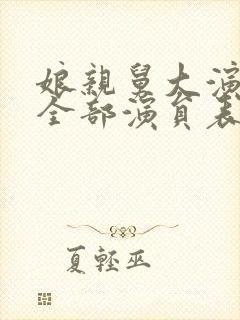 娘親舅大演
全部演員表
夏輕巫